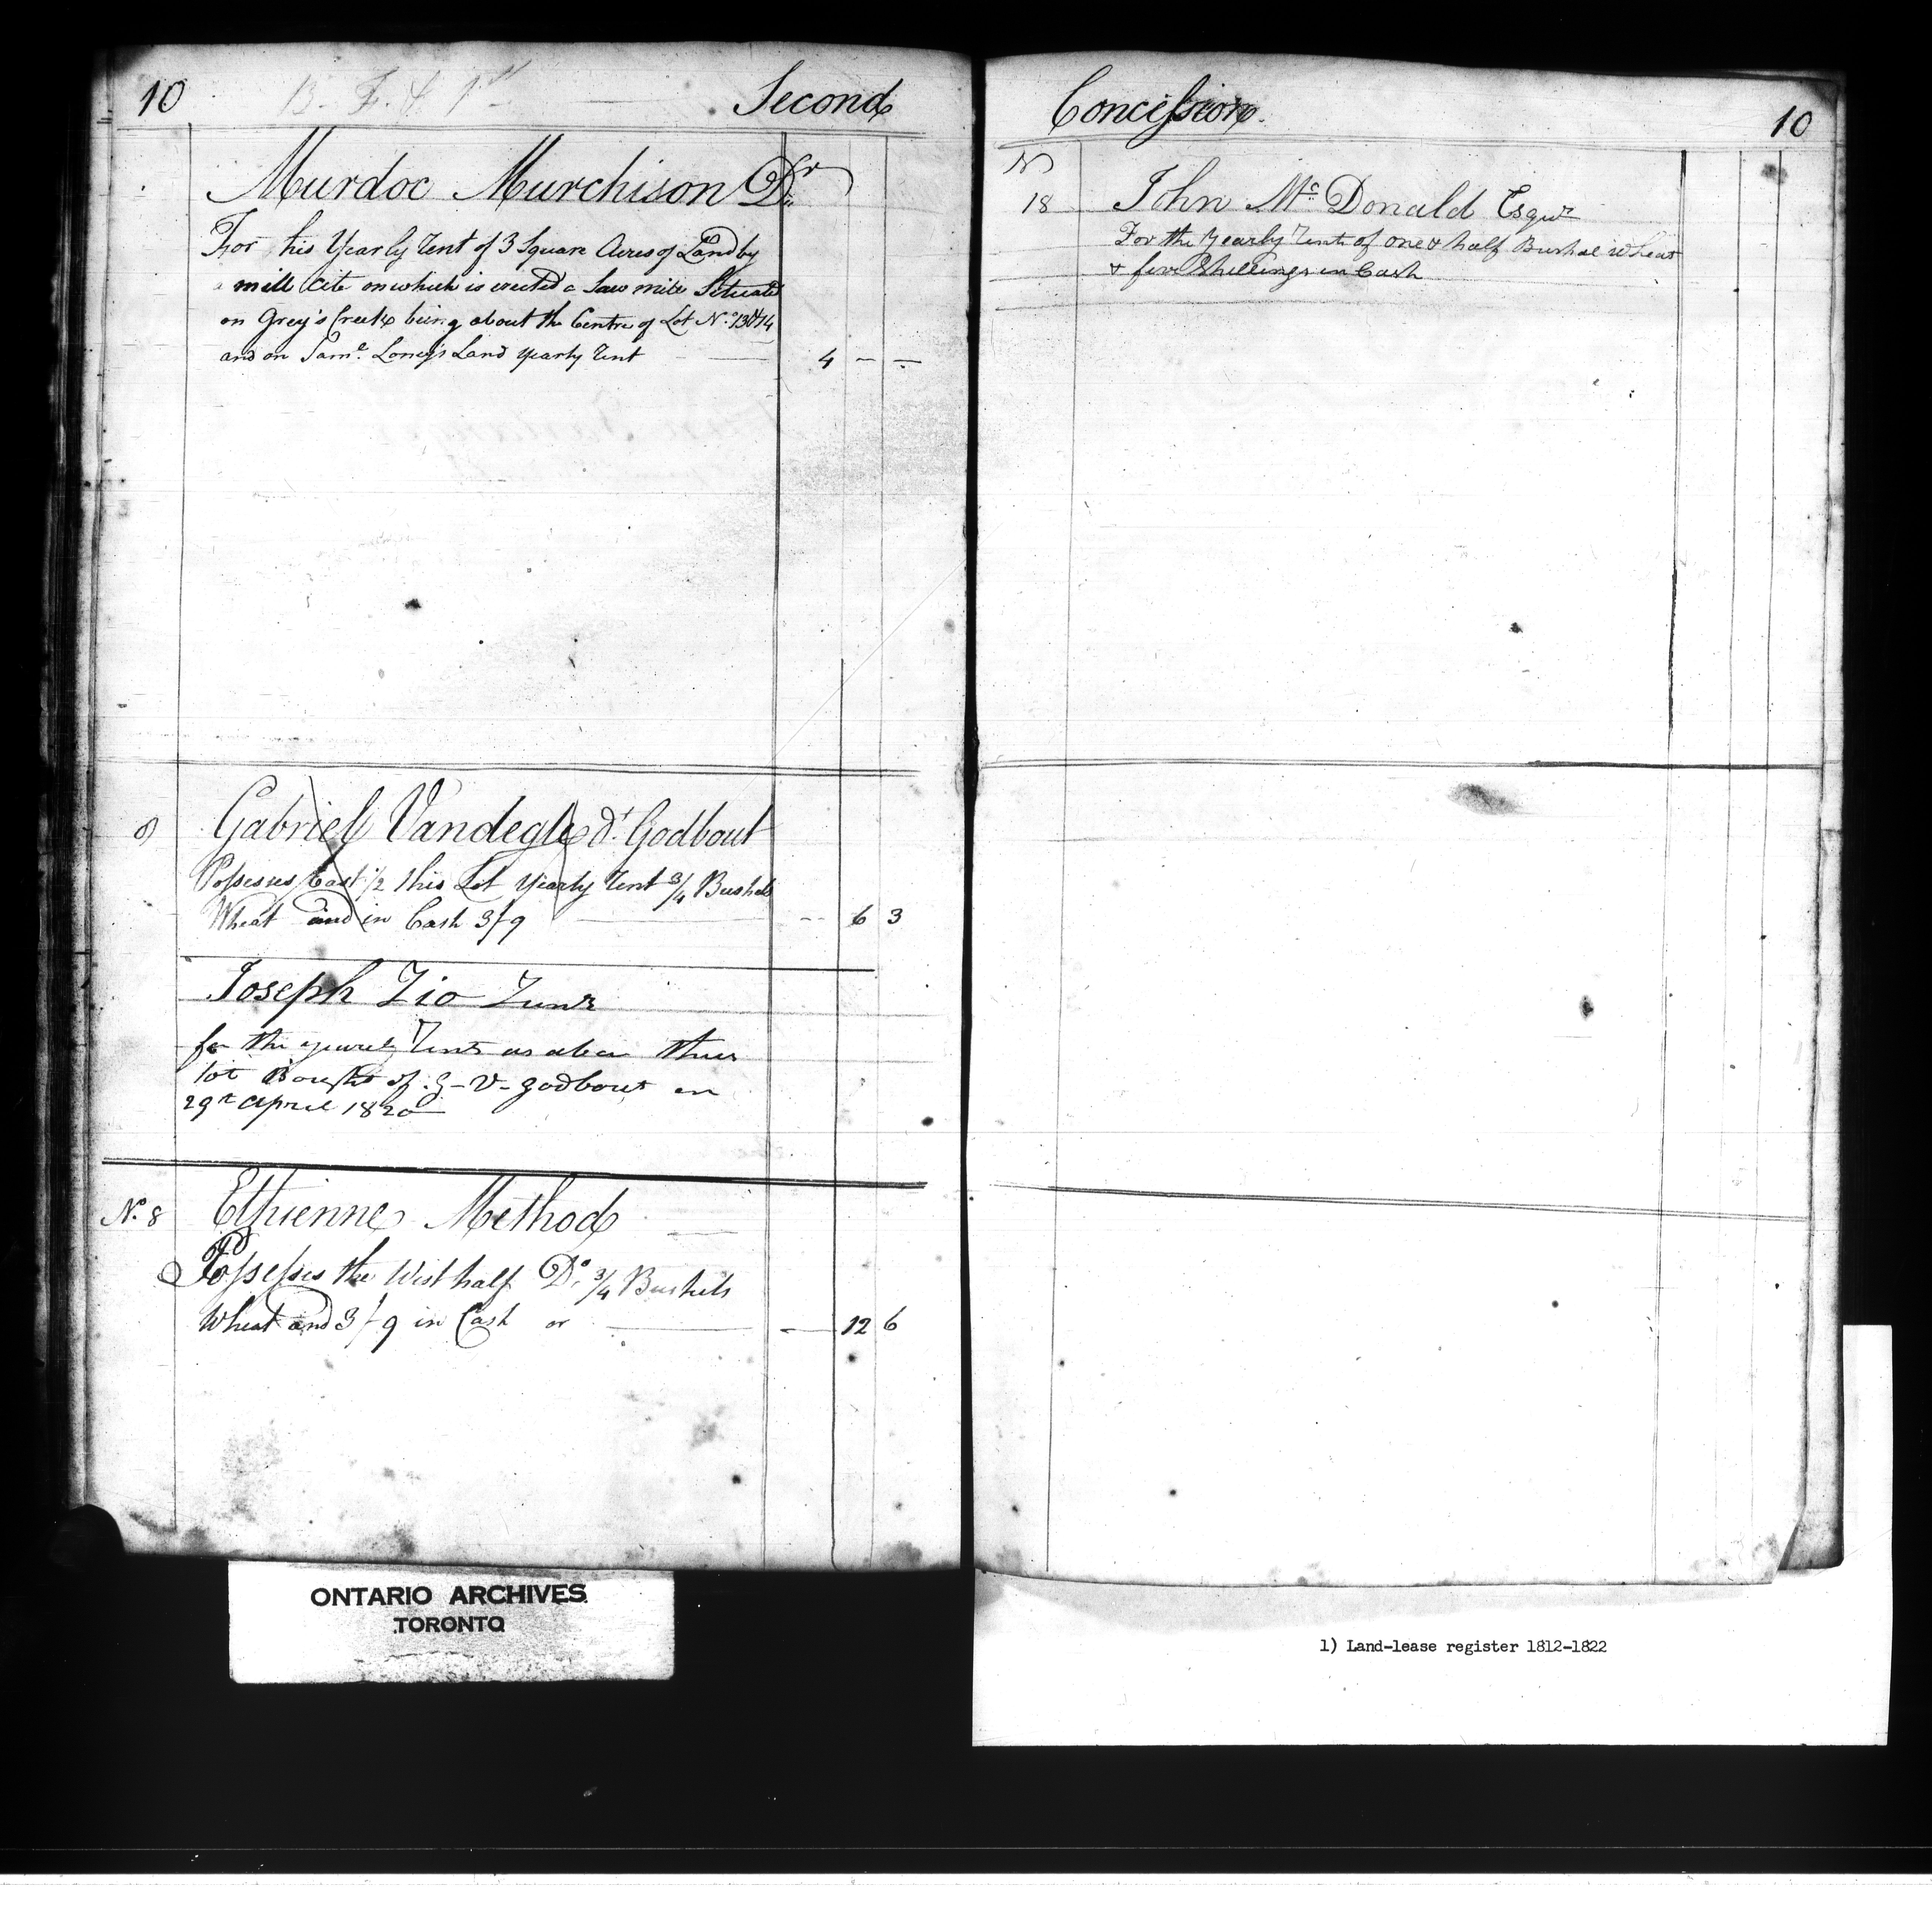 10 Second
Murdoc Murchison Dr
For his Yearly Rent of 3 Square Acres of Land by
a mill cite on which is erected a Saw mill Situated
on Grey's Creek being about the Centre of Lot No. 13 & 14
and on Saml. Loney's Land yearly Rent 4 - -
Gabriel Vandegle dt Godbout
Possesses East 1/2 this Lot Yearly Rent 3/4 Bushels
Wheat and in Cash 3/9 -- 6 3
Joseph Zio Junr
for the yearely Rents as above this
lot Bought of G-V-godbout on
29t April 1820
No. 8 Ethienne Method
Possesses the West half Do. 3/4 Bushels
Wheat and 3/9 in Cash or - 12 6
Concession. 10
N
18 John Mc Donald Esqur
For the Yearly Rents of one & half Bushel Wheat
& five Shillings in Cash
ONTARIO ARCHIVES
TORONTO
1) Land-lease register 1812-1822